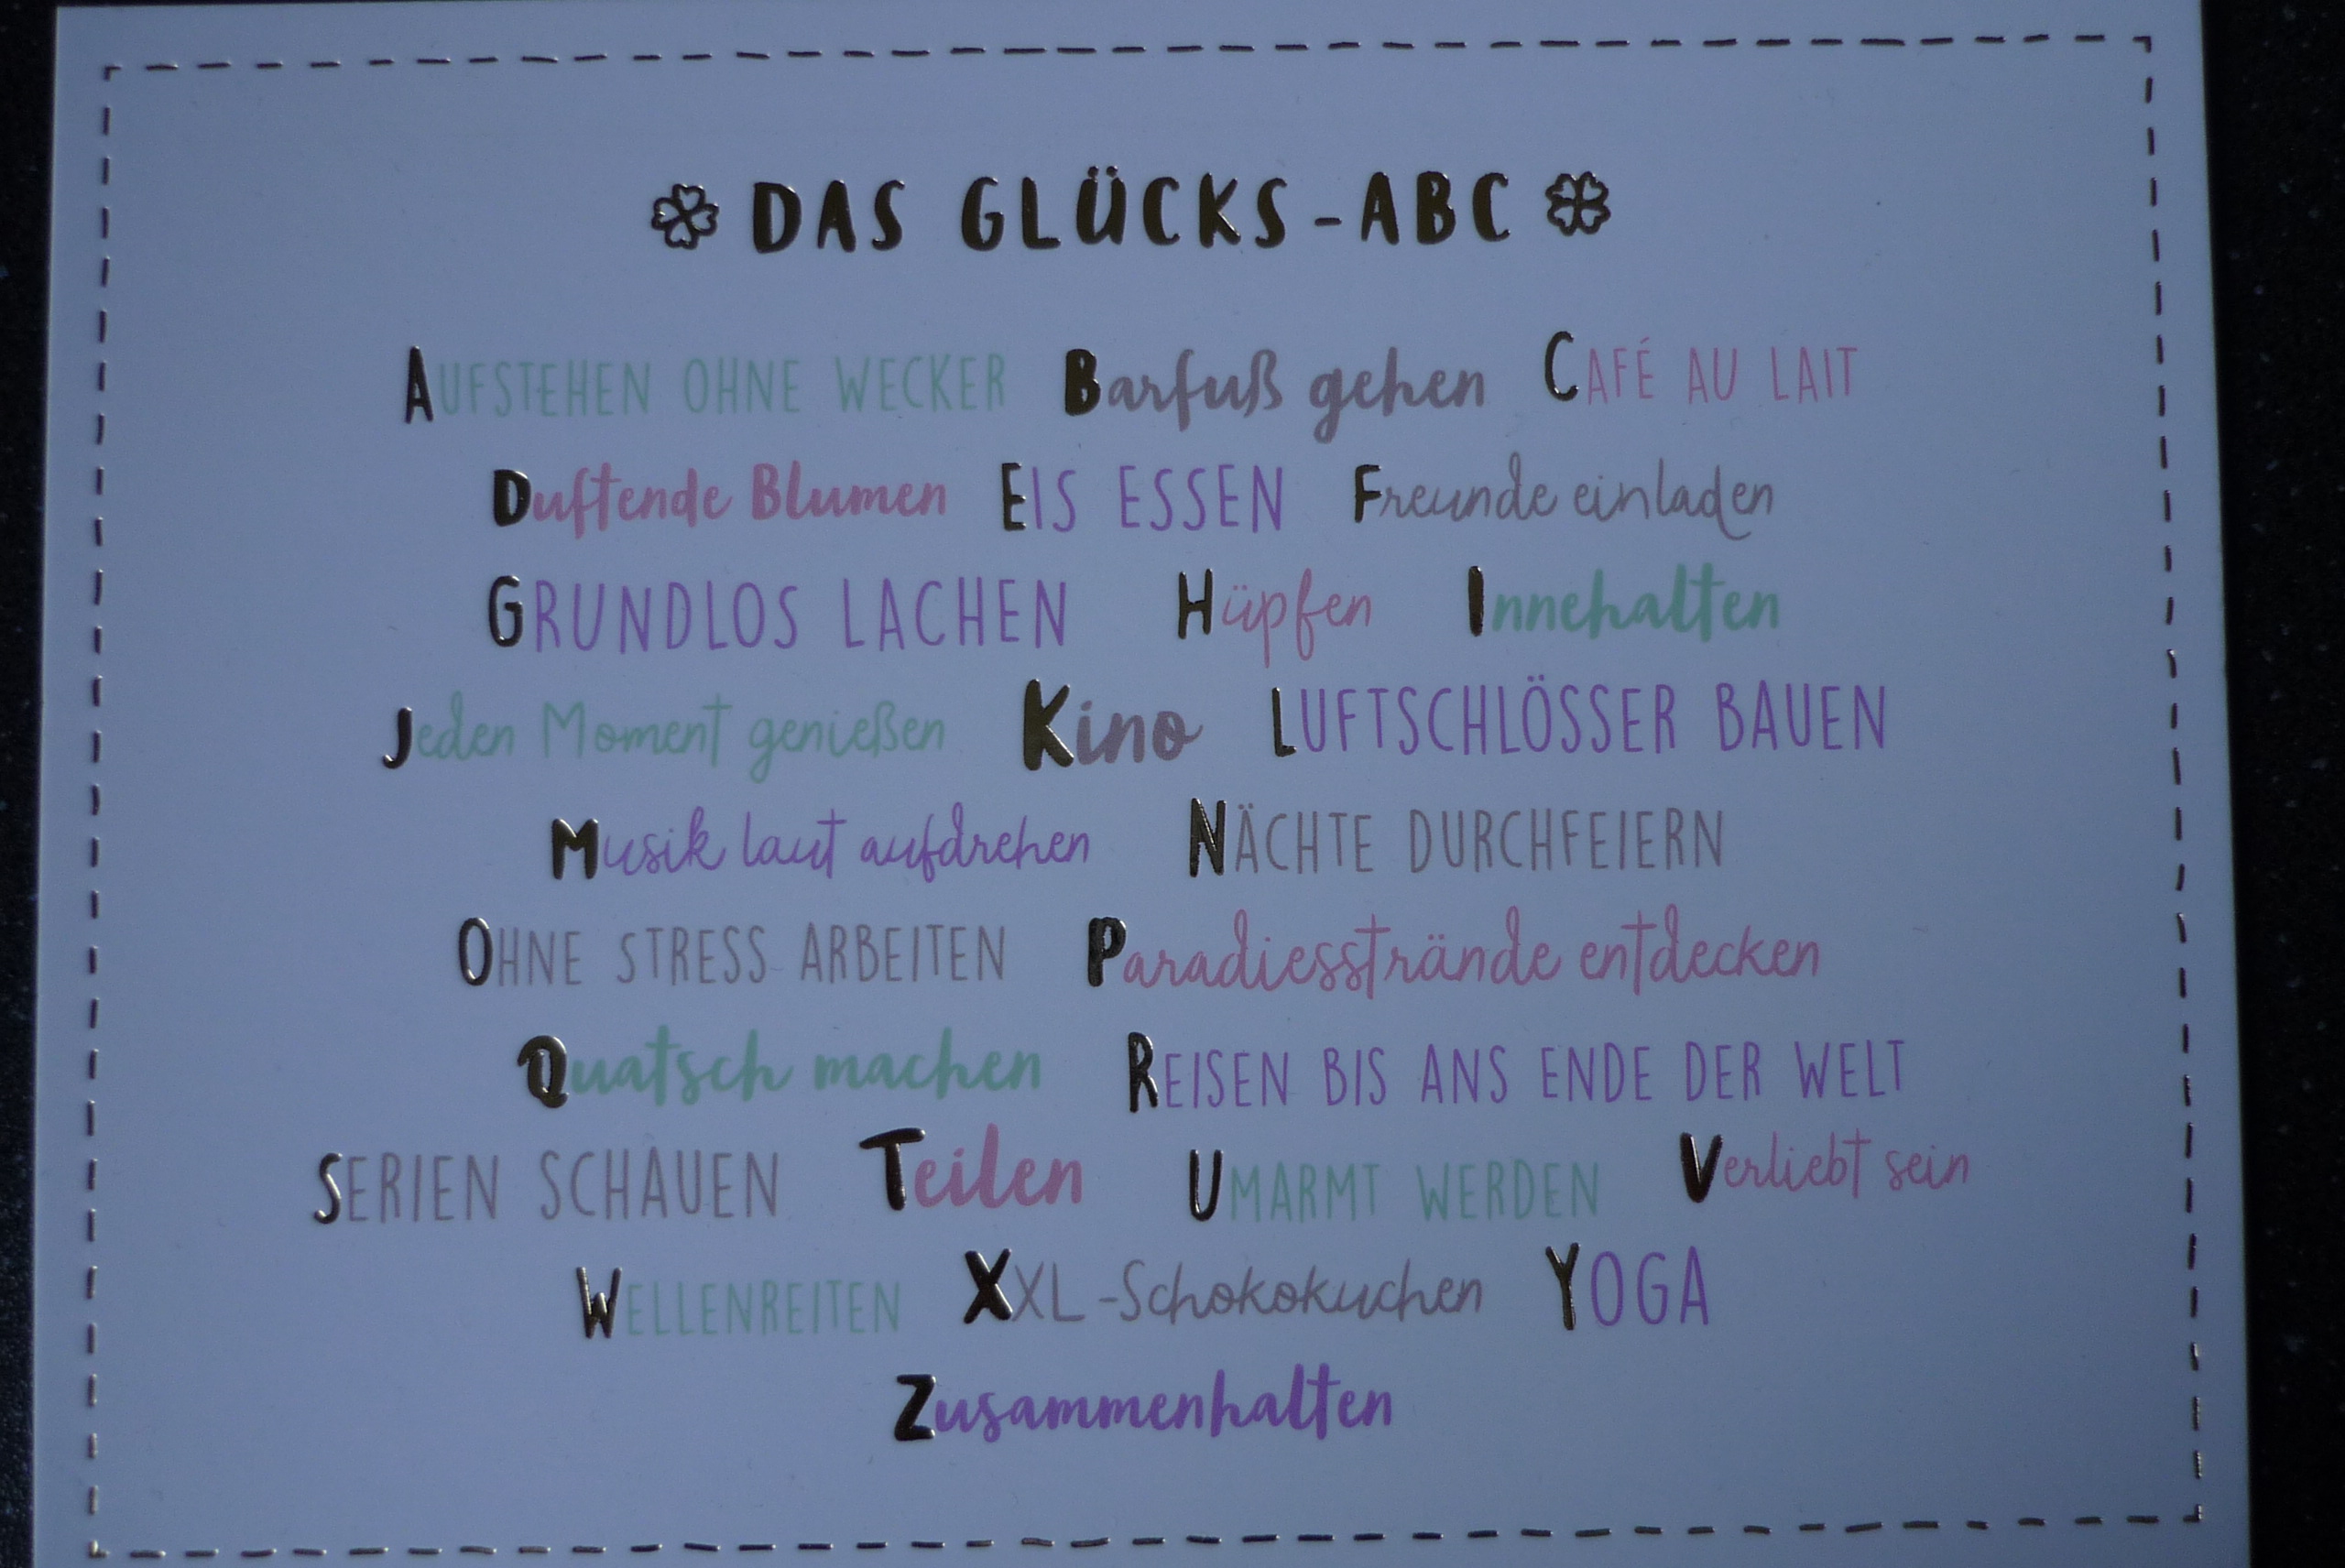 DAS GLÜCKS-ABC
AUFSTEHEN OHNE WECKER Barfuß gehen CAFÉ AU LAIT
Duftende Blumen EIS ESSEN Freunde einladen
GRUNDLOS LACHEN Hüpfen Innehalten
Jeden Moment genießen Kino LUFTSCHLÖSSER BAUEN
Musik laut aufdrehen NÄCHTE DURCHFEIERN
OHNE STRESS ARBEITEN Paradiesstrände entdecken
Quatsch machen REISEN BIS ANS ENDE DER WELT
SERIEN SCHAUEN Teilen UMARMT WERDEN Verliebt sein
WELLENREITEN XXL-Schokokuchen YOGA
Zusammenhalten